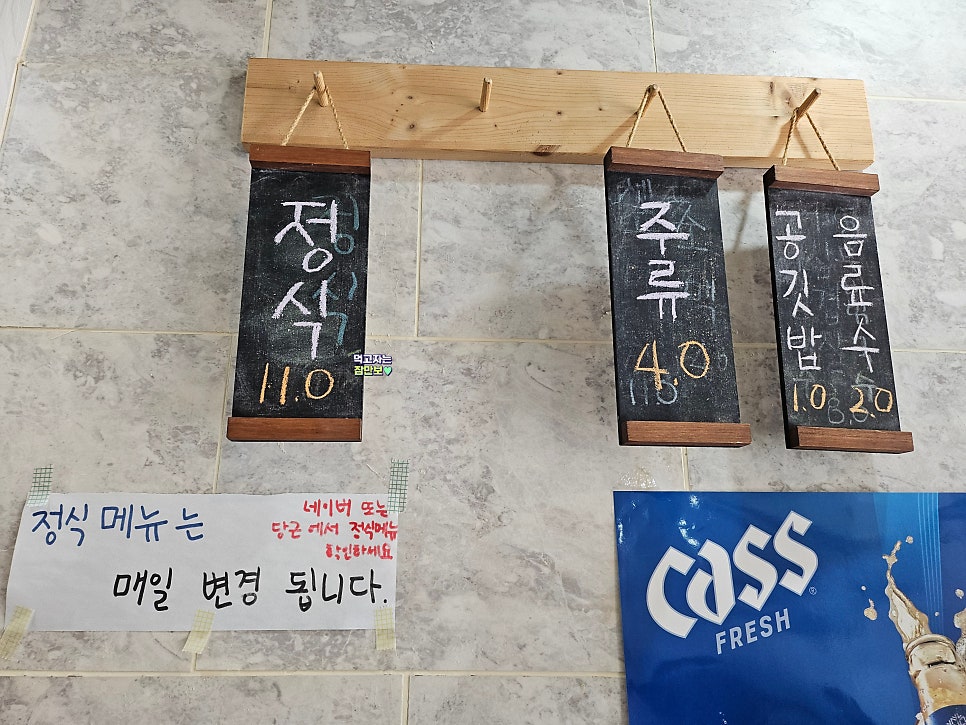 정식
11.0
먹고자는
잠만보
주류
4.0
공깃밥
1.0
음료수
2.0
정식 메뉴는
매일 변경 됩니다.
네이버 또는
당근에서 정식메뉴
확인하세요
Cass
FRESH